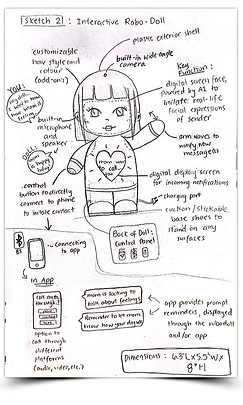 Sketch 2: Interactive Robo-Doll
plastic exterior shell
customizable
hair style and
colour
(add-ons)
built-in wide-angle
camera
Key
Function:
digital screen face,
powered by AI to
imitate real-life
facial expressions
of sender
You:
built-in
microphone
and
speaker
Doll:
mom
is happy
today
arm waves to
notify new
message(s)
mom want
to call
you
digital display screen
for incoming notifications
control
button to directly
connect to phone
to initiate contact
charging port
cushion/stickable
base shoes to
stand on any
surfaces
Back of Doll:
Control Panel
connecting
to app
In App
call mom
through:
option to
call through
different
platforms
(audio, video, etc.)
mom is looking to
talk about feelings
Reminder to let mom
know how your day is
app provides prompt
reminders, displayed
through the robodoll
and/or app
Dimensions: 6.3"L x 5.5"W x
8"H